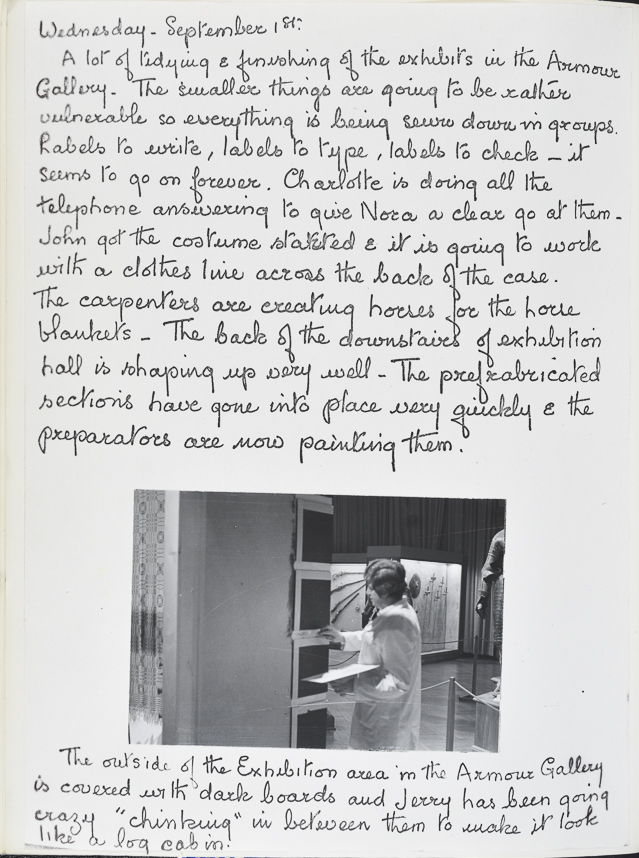 Wednesday - September 1st.
A lot of tidying & finishing of the exhibits in the Armour
Gallery. The smaller things are going to be rather
vulnerable so everything is being sewn down in groups.
Labels to write, labels to type, labels to check - it
seems to go on forever. Charlotte is doing all the
telephone answering to give Nora a clear go at them -
John got the costume started & it is going to work
with a clothes line across the back of the case.
The carpenters are creating horses for the horse
blankets - The back of the downstairs of exhibition
hall is shaping up very well - The prefrabricated
sections have gone into place very quickly & the
preparators are now painting them.
The outside of the Exhibition area in the Armour Gallery
is covered with dark boards and Jerry has been going
crazy "chinking" in between them to make it look
like a log cabin.